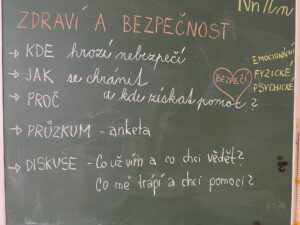 ZDRAVÍ A BEZPEČNOST
→ KDE hrozí nebezpečí
→ JAK se chránit
→ PROČ a kde získat pomoc?
→ PRŮZKUM - anketa
→ DISKUSE - Co už vím a co chci vědět?
Co mě trápí a chci pomoci?
BEZPEČÍ
EMOCIONÁLNÍ
FYZICKÉ
PSYCHICKÉ